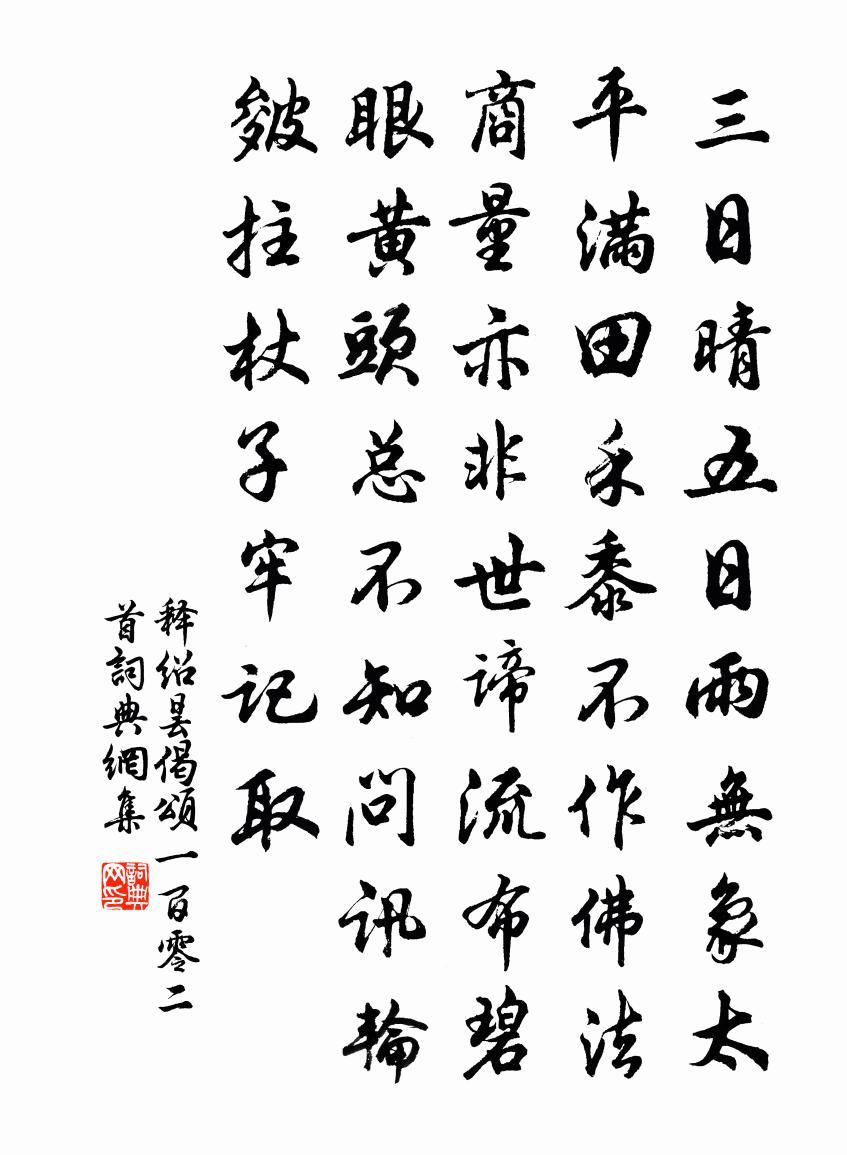 三日晴五日雨無象太
平滿田禾黍不作佛法
商量亦非世諦流布碧
眼黃頭总不知問訊輪
皴拄杖子牢記取
释紹昙偈頌一百零二
首詞典網集
詞典网印